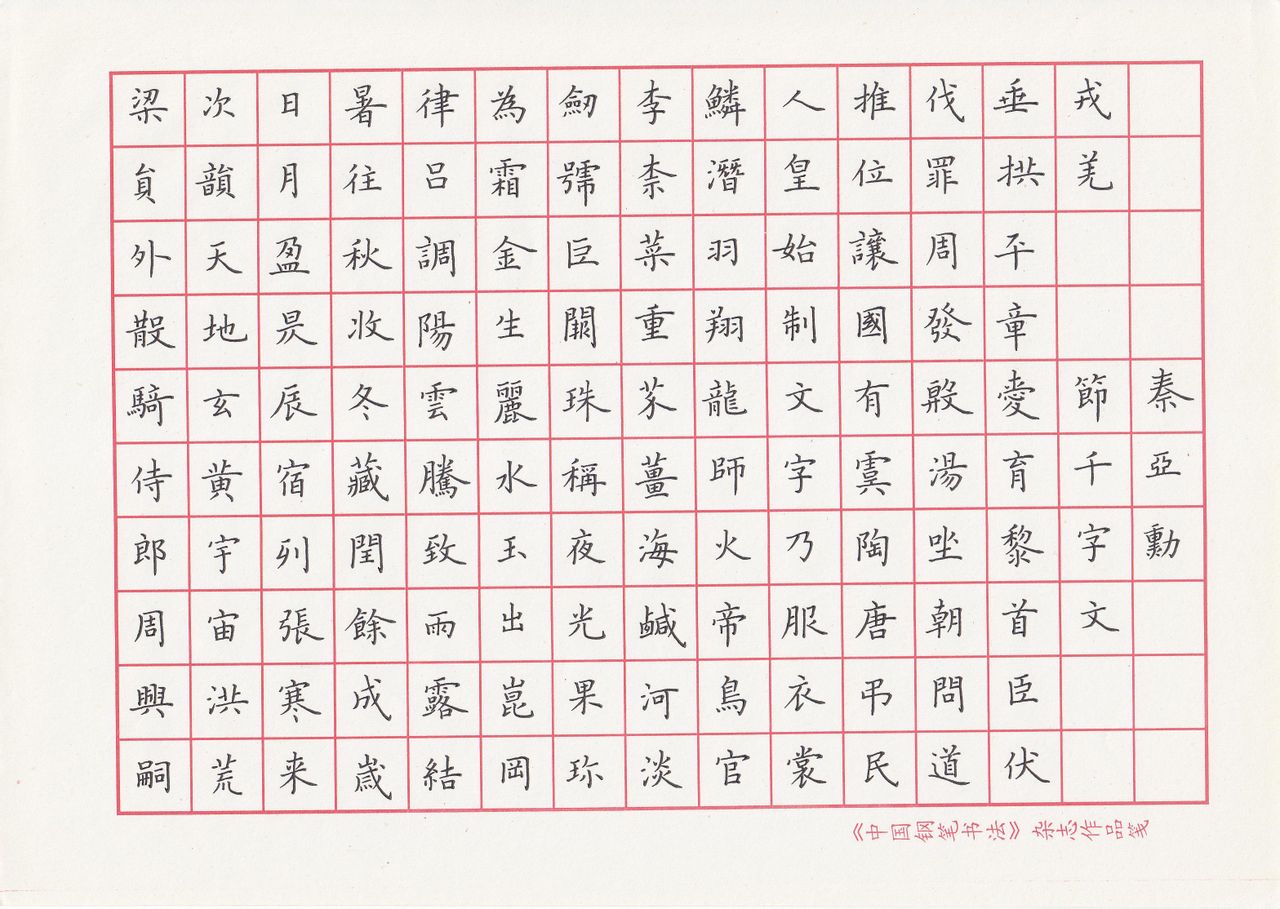 梁貟外散騎侍郎周興嗣
次韻天地玄黃宇宙洪荒
日月盈昃辰宿列張寒来
暑往秋收冬藏閏餘成歲
律呂調陽雲騰致雨露結
為霜金生麗水玉出崑岡
劒號巨闕珠稱夜光果珎
李柰菜重芥薑海鹹河淡
鱗潛羽翔龍師火帝鳥官
人皇始制文字乃服衣裳
推位讓國有虞陶唐弔民
伐罪周發殷湯坐朝問道
垂拱平章愛育黎首臣伏
戎羌
節千字文
秦亞勳
《中国钢笔书法》杂志作品笺